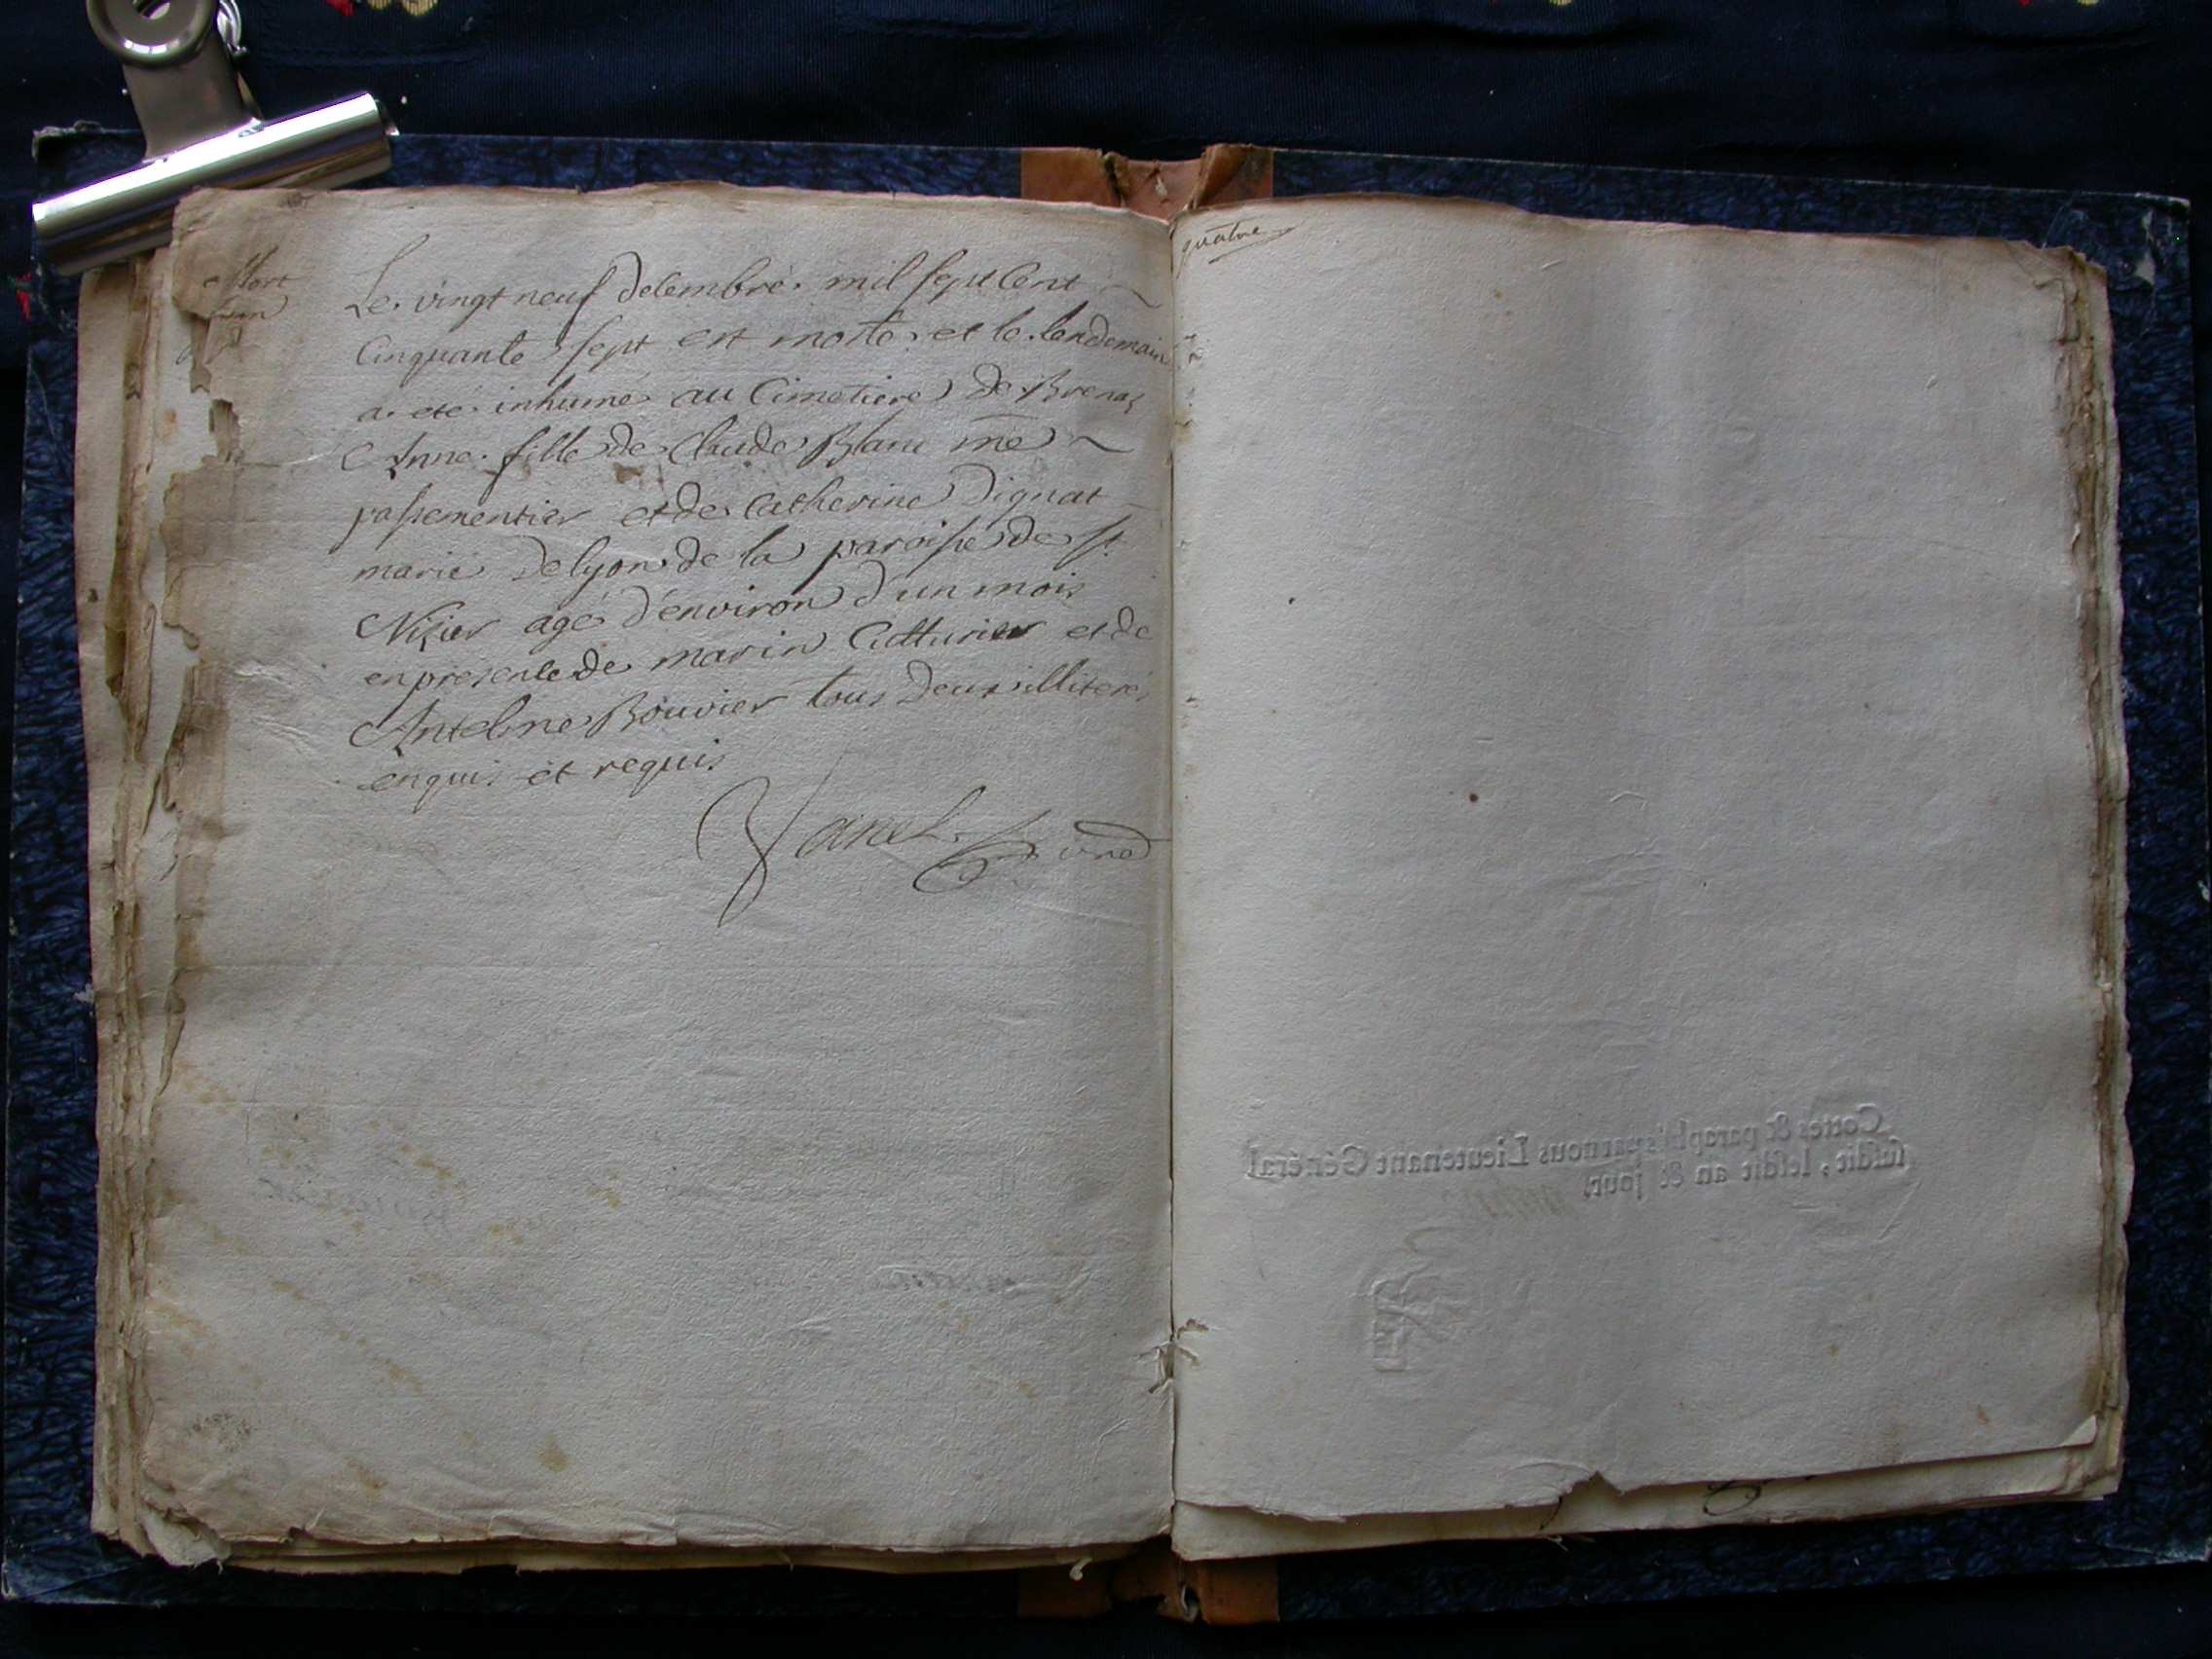 Mort
Le vingt neuf decembre mil sept cent
Cinquante sept est morte et le lendemain
a eté inhumé au Cimetiere de Brenaz
Anne fille de Claude Blanc me
passementier et de Catherine Dignat
marié de lyon de la paroisse de st
Nizier agé d'environ d'un mois
en presence de marin Cutturier et de
Antelme Bouvier tous deux illiteré
enquis et requis
Vanel
quatre
Cottes & paraphés par nous Lieutenant Général
susdit, lesdit an & jour,